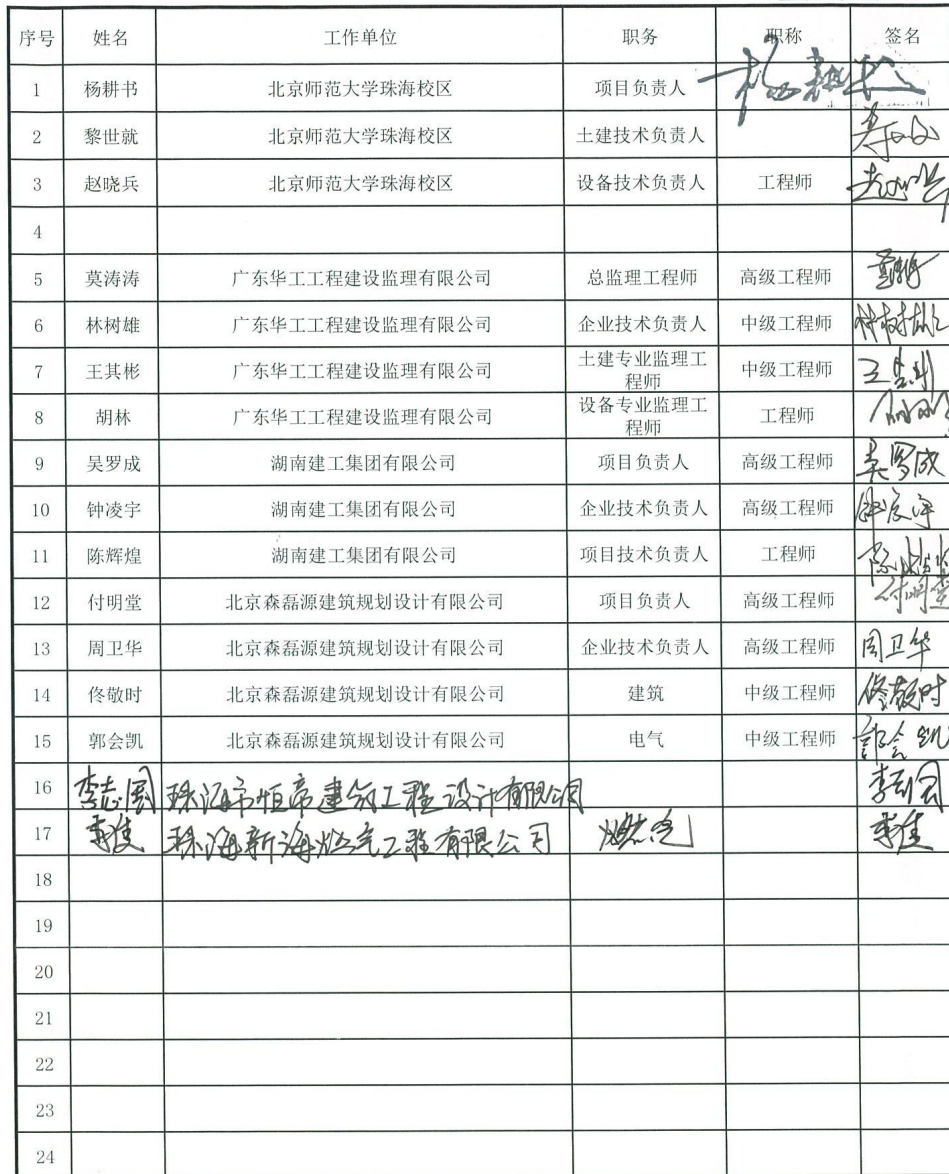 序号 姓名 工作单位 职务 职称 签名
1 杨耕书 北京师范大学珠海校区 项目负责人
2 黎世就 北京师范大学珠海校区 土建技术负责人
3 赵晓兵 北京师范大学珠海校区 设备技术负责人 工程师
4
5 莫涛涛 广东华工工程建设监理有限公司 总监理工程师 高级工程师
6 林树雄 广东华工工程建设监理有限公司 企业技术负责人 中级工程师 林树雄
7 王其彬 广东华工工程建设监理有限公司 土建专业监理工
程师 中级工程师
8 胡林 广东华工工程建设监理有限公司 设备专业监理工
程师 工程师
9 吴罗成 湖南建工集团有限公司 项目负责人 高级工程师 吴罗成
10 钟凌宇 湖南建工集团有限公司 企业技术负责人 高级工程师
11 陈辉煌 湖南建工集团有限公司 项目技术负责人 工程师
12 付明堂 北京森磊源建筑规划设计有限公司 项目负责人 高级工程师 付明堂
13 周卫华 北京森磊源建筑规划设计有限公司 企业技术负责人 高级工程师 周卫华
14 佟敬时 北京森磊源建筑规划设计有限公司 建筑 中级工程师 佟敬时
15 郭会凯 北京森磊源建筑规划设计有限公司 电气 中级工程师 郭会凯
16 李志国 珠海市恒帝建筑工程设计有限公司 李志国
17 珠海新海燃气工程有限公司 燃气
18
19
20
21
22
23
24